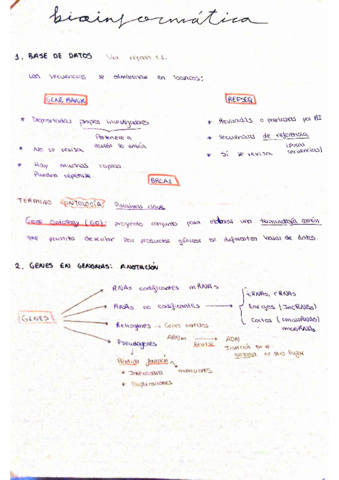 bioinformática
1. BASE DE DATOS
Las secuencias se almacenan en bancos:
GENE BANK REFSEQ
* Depositadas propios investigadores
Pertenece a quién lo envía
* No se revisa
* Hay muchas copias.
Pueden repetirse
* Revisadas o producidas por
* Secuencias de referencia
(pocas secuencias)
* Sí se revisa
TERMINO ONTOLOGÍA: Palabras clave
Gene Ontology (GO): proyecto conjunto para obtener una terminología común
que permita describir los productos génicos en diferentes bases de datos.
2. GENES EN GENOMAS: ANOTACIÓN
GENES
RNAs codificantes mRNAs
RNAs no codificantes
tRNAs, rRNAs
Largos (lncRNAs)
Cortos
Retrogenes
Pseudogenes
ADN
Inserción en el genoma en otro lugar
Pérdida función
* mutaciones
* Duplicaciones